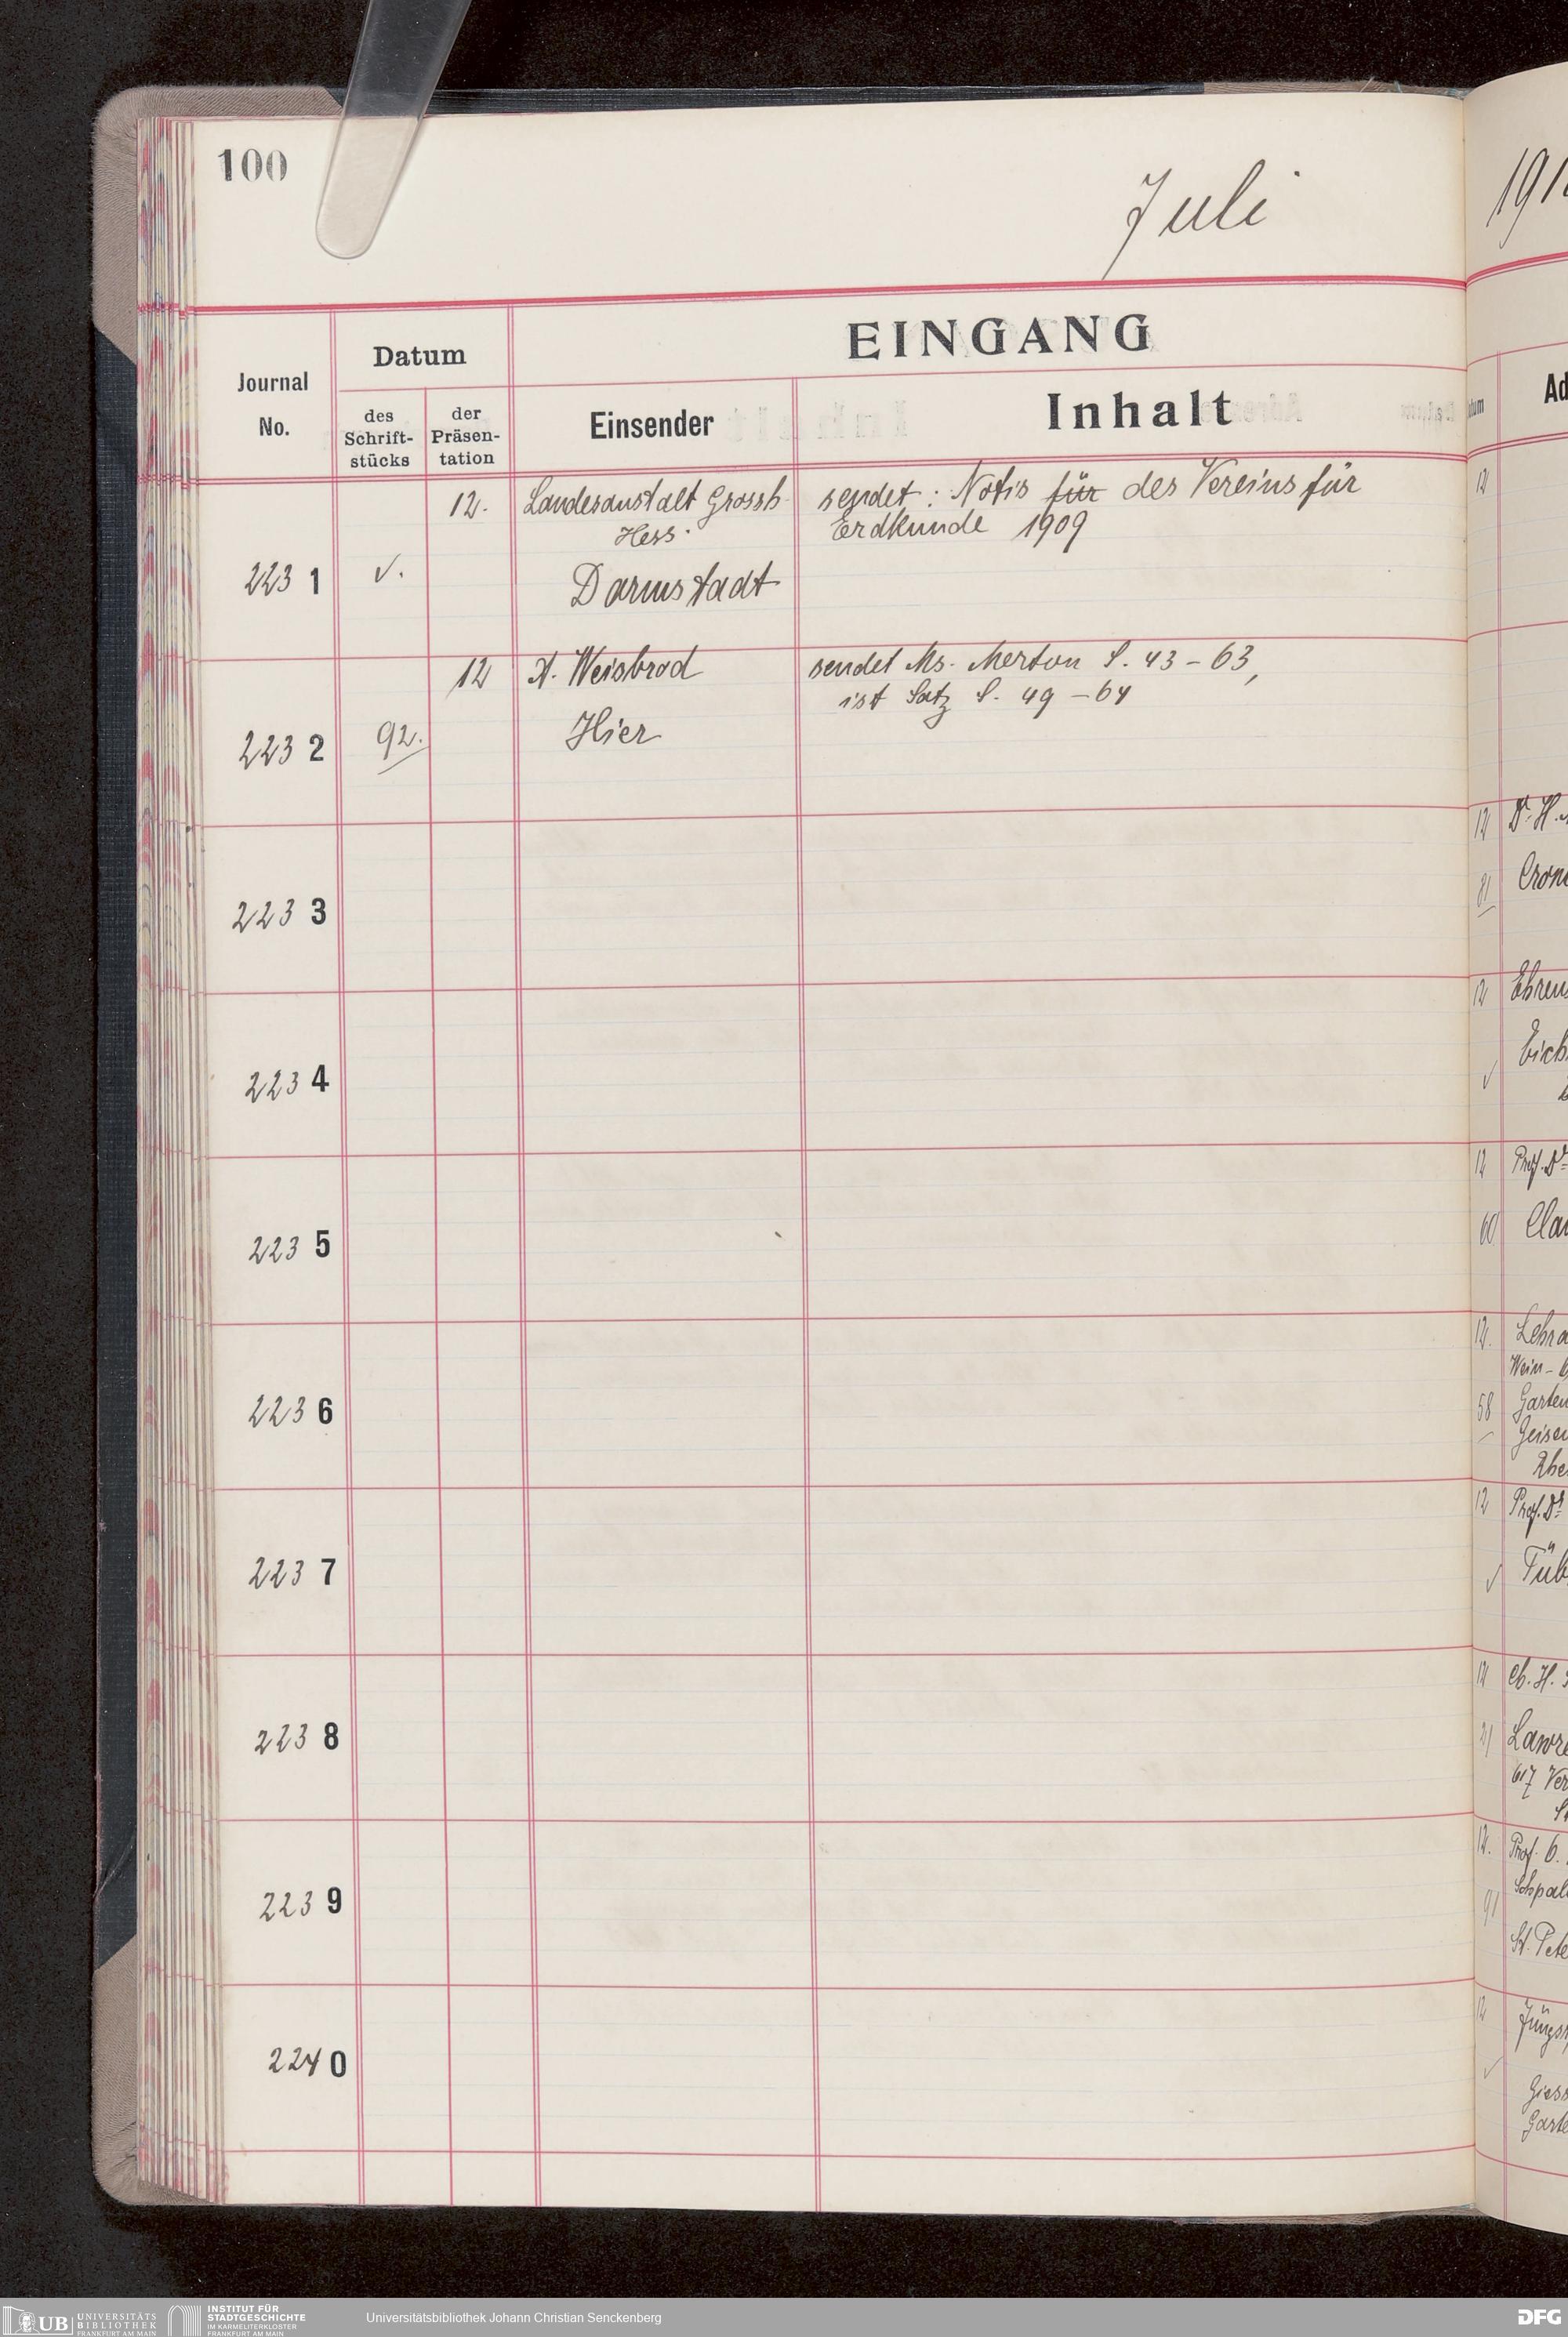 100
Juli
EINGANG
Journal
No.
Datum
des
Schrift-
stücks
der
Präsen-
tation
Einsender
Inhalt
223 1
✓.
12.
Landesanstalt Grossh.
Hess.
Darmstadt
sendet: Notis für des Vereins für
Erdkunde 1909
223 2
92.
12
A. Weisbrod
Hier
sendet Ms. Merton S. 43-63,
ist Satz S. 49-64
223 3
223 4
223 5
223 6
223 7
223 8
223 9
224 0
12
12
Dr. H.
81
12
✓
12
Prof. Dr.
60
12.
Wein-
58
12
Prof. Dr.
✓
12
12.
Prof.
91
12
✓
UB UNIVERSITÄTS
BIBLIOTHEK
FRANKFURT AM MAIN
INSTITUT FÜR
STADTGESCHICHTE
IM KARMELITERKLOSTER
FRANKFURT AM MAIN
Universitätsbibliothek Johann Christian Senckenberg
DFG